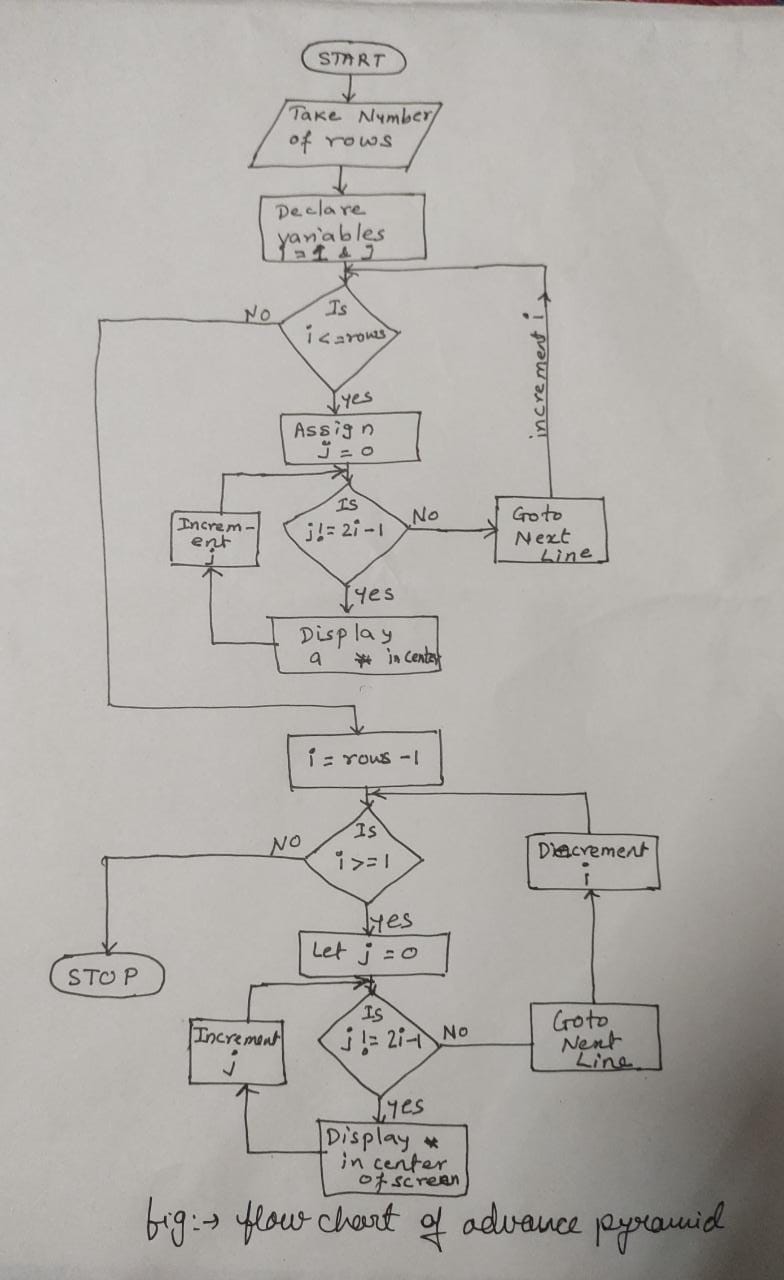 START
Take Number
of rows
Declare
variables
i = 1 & J
Is
i <= rows
NO
yes
increment i
Assign
j = 0
Is
j != 2i-1
No
Goto
Next
Line
Increm-
ent
j
yes
Display
a * in center
i = rows -1
Is
i >= 1
NO
Decrement
i
yes
STOP
Let j = 0
Is
j != 2i-1
No
Goto
Next
Line
Increment
j
yes
Display *
in center
of screen
fig:→ flow chart of advance pyramid